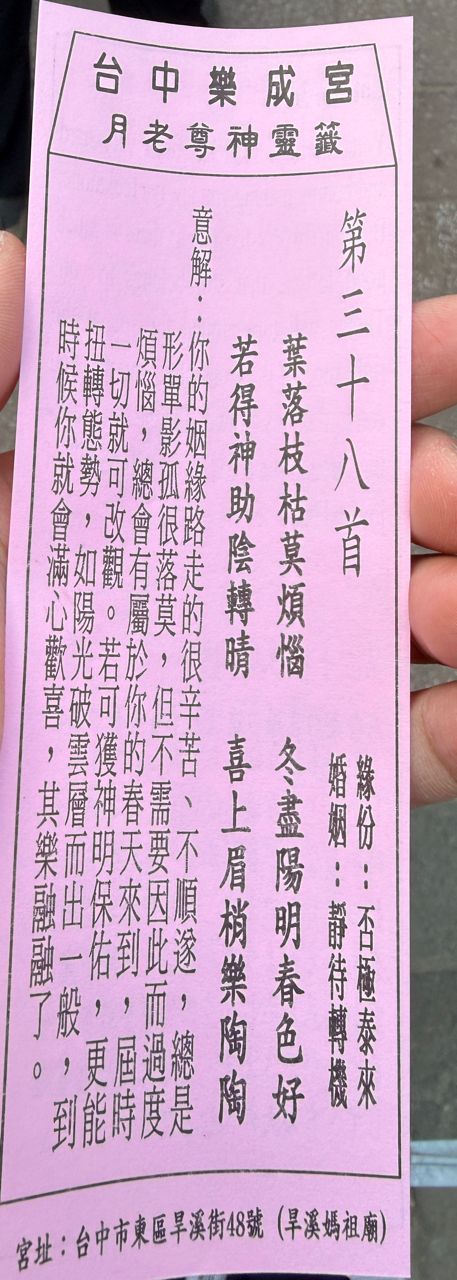 台中樂成宮
月老尊神靈籤
第三十八首
緣份：否極泰來
婚姻：靜待轉機
葉落枝枯莫煩惱 冬盡陽明春色好
若得神助陰轉晴 喜上眉梢樂陶陶
意解：你的姻緣路走的很辛苦、不順遂，總是
形單影孤很落莫，但不需要因此而過度
煩惱，總會有屬於你的春天來到，屆時
一切就可改觀。若可獲神明保佑，更能
扭轉態勢，如陽光破雲層而出一般，到
時候你就會滿心歡喜，其樂融融了。
宮址：台中市東區旱溪街48號（旱溪媽祖廟）